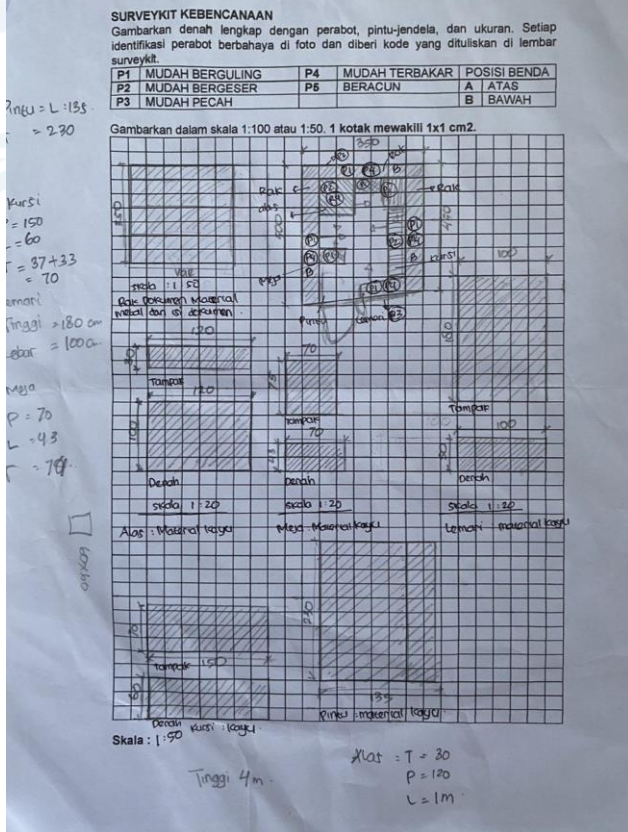 SURVEYKIT KEBENCANAAN
Gambarkan denah lengkap dengan perabot, pintu-jendela, dan ukuran. Setiap
identifikasi perabot berbahaya di foto dan diberi kode yang dituliskan di lembar
surveykit.
P1 MUDAH BERGULING P4 MUDAH TERBAKAR POSISI BENDA
P2 MUDAH BERGESER P5 BERACUN A ATAS
P3 MUDAH PECAH B BAWAH
Gambarkan dalam skala 1:100 atau 1:50. 1 kotak mewakili 1x1 cm2.
Pintu = L : 135
= 230
Kursi
= 150
= 60
= 37 + 33
= 70
Tinggi = 180 cm
= 100 cm
Meja
P = 70
L = 43
350
Rak
Rak
Rak
alas
400
450
B
B
B
Kursi
Meja
Pintu
Lemari P3
skala : 1 50
Rak Dokumen Material
metal dan isi dokumen
120
30
Tampak
120
100
Denah
skala 1 : 20
Alas : Material kayu
70
75
Tampak
70
43
Denah
skala 1 : 20
Meja : Material kayu
100
180
Tampak
100
Denah
skala 1 : 20
Lemari : material kayu
60x60
70
Tampak 150
60
Denah Kursi : kayu
230
135
Pintu : material kayu
Skala : 1:50
Tinggi 4 m
Alas : T = 30
P = 120
L = 1m